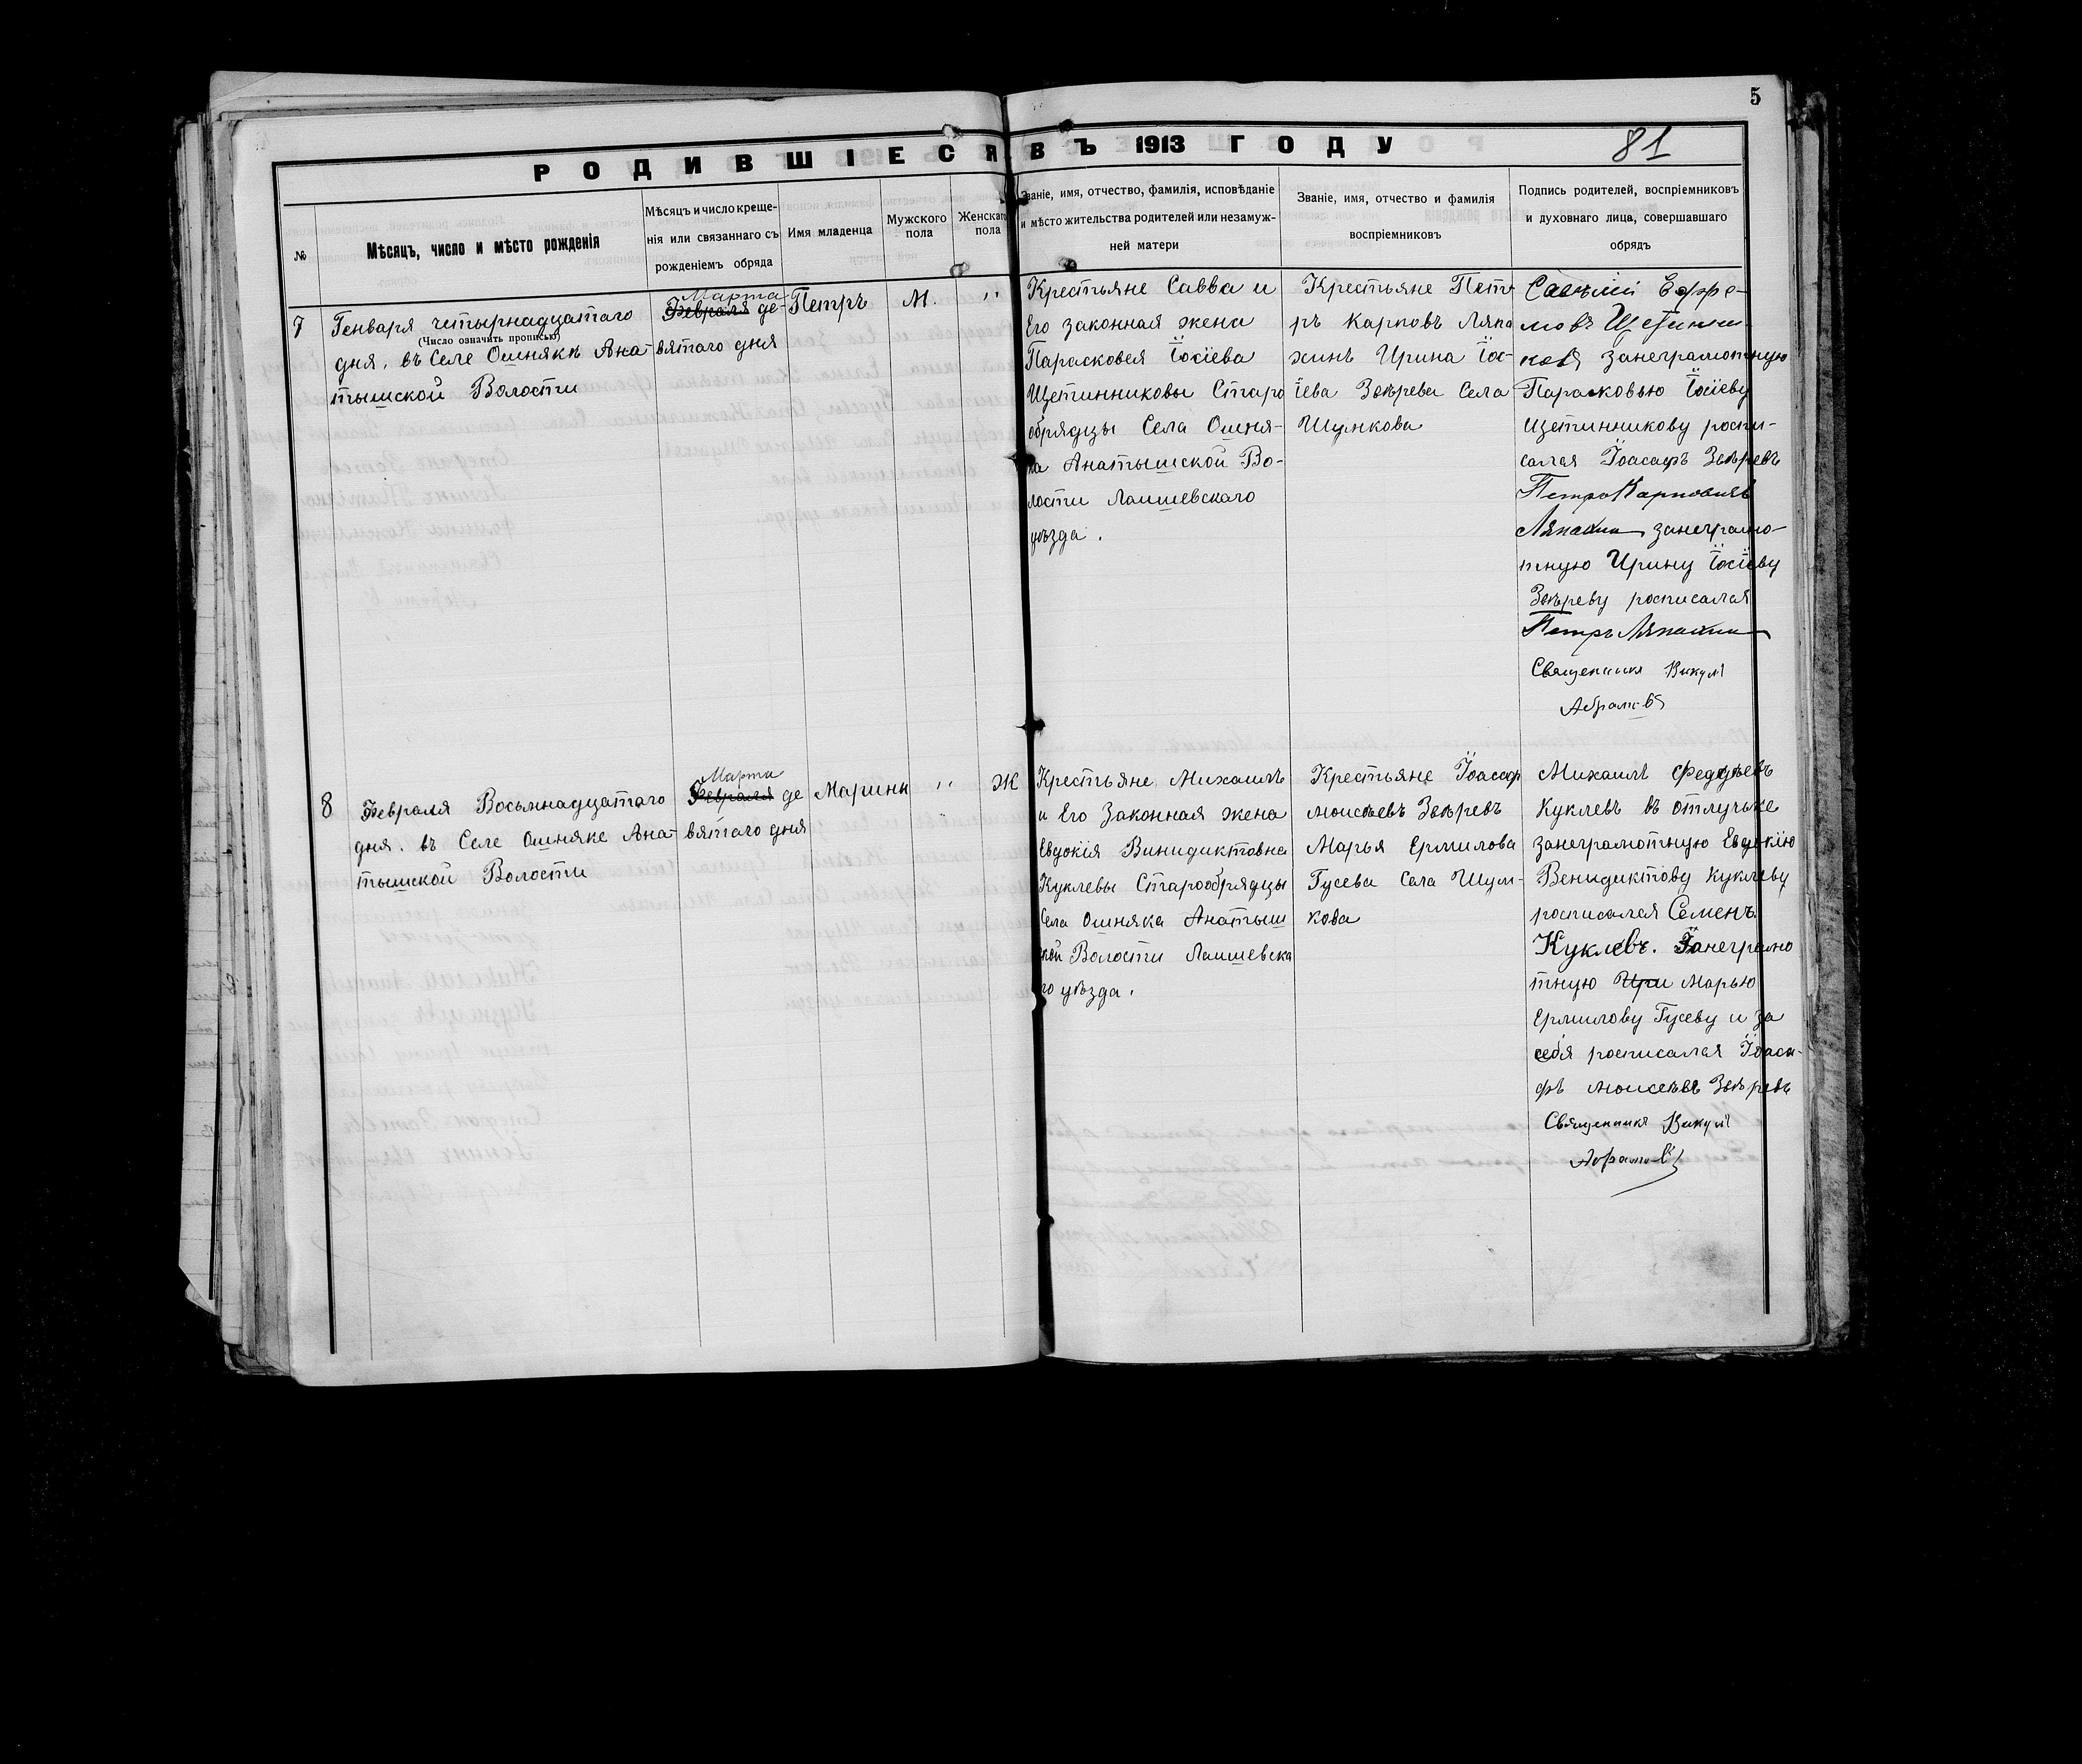 5
81
РОДИВШІЕСЯ ВЪ 1913 ГОДУ
№
Мѣсяцъ, число и мѣсто рожденія
Мѣсяцъ и число креще-
нія или связаннаго съ
рожденіемъ обряда
Имя младенца
Мужского
пола
Женскаго
пола
Званіе, имя, отчество, фамилія, исповѣданіе
и мѣсто жительства родителей или незамуж-
ней матери
Званіе, имя, отчество и фамилія
воспріемниковъ
Подпись родителей, воспріемниковъ
и духовнаго лица, совершавшаго
обрядъ
7
Генваря четырнадцатаго
(Число означить прописью)
дня. въ Селе Ошнякѣ Ана-
тышской Волости
Марта
Февраля де-
вятаго дня
Петръ
М.
"
Крестьяне Савва и
Его законная жена
Парасковея Іосіева
Щетинниковы Старо
обрядцы Села Ошня-
ка Анатышской Во-
лости Лаишевскаго
уѣзда.
Крестьяне Пет
ръ Карповъ Ляпа
хинъ Ирина Іос-
іева Звѣрева Села
Шумкова
Ефре-
мовъ Щетинни
ковъ занеграмотную
Парасковью Іосіеву
Щетинникову роспи-
сался Іоасафъ Звѣревъ
Петръ Карповичъ
занеграмо-
тную Ирину Іосіеву
Звѣреву росписался
Петръ
Священникъ Викулъ
Абрамовъ
8
Февраля Восьмнадцатаго
дня. въ Селе Ошняке Ана-
тышской Волости
Марта
Февраля де
вятаго дня
Марина
"
Ж
Крестьяне Михаилъ
и Его Законная жена
Евдокія Винидиктовна
Куклевы Старообрядцы
Села Ошняка Анатыш
ской Волости Лаишевска
го уѣзда.
Крестьяне Іоасаф
моисѣевъ Звѣревъ
Марья Ермилова
Гусева Села Шум-
кова
Михаилъ Федотьевъ
Куклевъ въ отлучьке
занеграмотную Евдокію
Венидиктову Куклеву
росписался Семенъ
Куклевъ. Занеграмо
тную Ири Марью
Ермилову Гусеву и за
себя росписался Іоаса-
фъ моисѣевъ Звѣревъ
Священникъ Викулъ
Абрамовъ